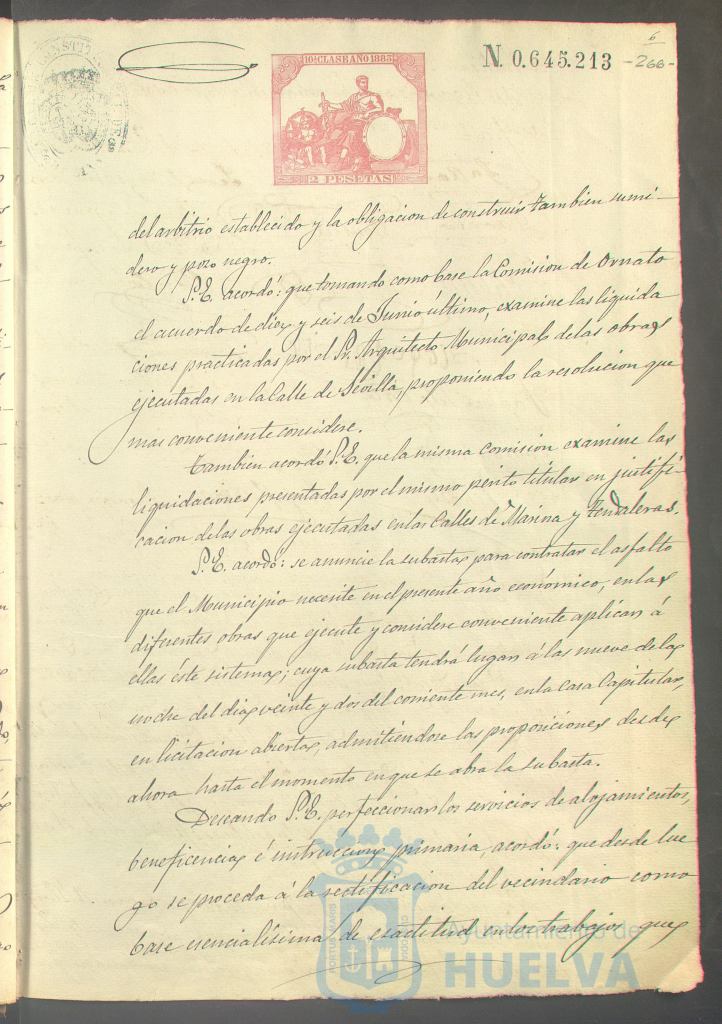 6
10ª CLASE AÑO 1885
N. 0.645.213
-266-
2 PESETAS
del arbitrio establecido y la obligacion de construir tambien sumi-
dero y pozo negro.
S.E. acordó: que tomando como base la Comision de Ornato
el acuerdo de diez y seis de Junio último, examine las liquida
ciones practicadas por el Sr. Arquitecto Municipal de las obras
ejecutadas en la Calle de Sevilla, proponiendo la resolucion que
mas conveniente considere.
Tambien acordó S.E. que la misma comision examine las
liquidaciones presentadas por el mismo perito titular en justifi-
cacion de las obras ejecutadas en las Calles de Marina y Tendaleras.
S.E. acordó: se anuncie la subasta para contratar el asfalto
que el Municipio necesite en el presente año económico, en las
diferentes obras que ejecute y considere conveniente aplicar á
ellas éste sistema; cuya subasta tendrá lugar á las nueve de la
noche del dia veinte y dos del corriente mes, en la Casa Capitular,
en licitacion abierta, admitiendose las proposiciones desde
ahora hasta el momento en que se abra la subasta.
Deseando S.E. perfeccionar los servicios de alojamientos,
beneficencia é instruccion primaria, acordó: que desde lue
go se proceda á la rectificacion del vecindario como
base esencialísima de exactitud en los trabajos que
Ayuntamiento de
HUELVA